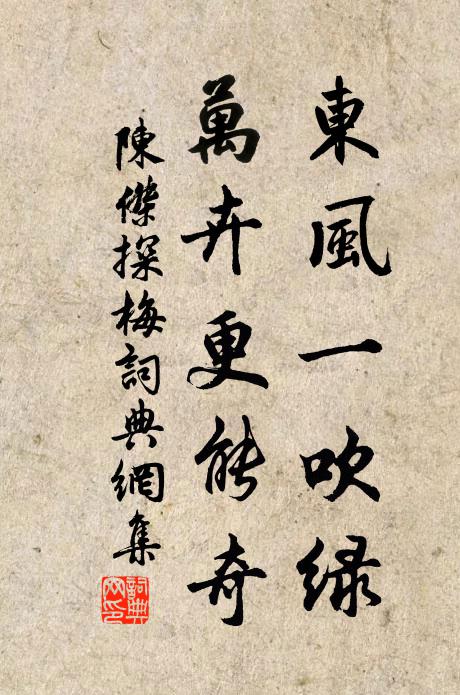 東風一吹绿
萬卉更能奇
陳傑探梅詞典網集
詞典网印